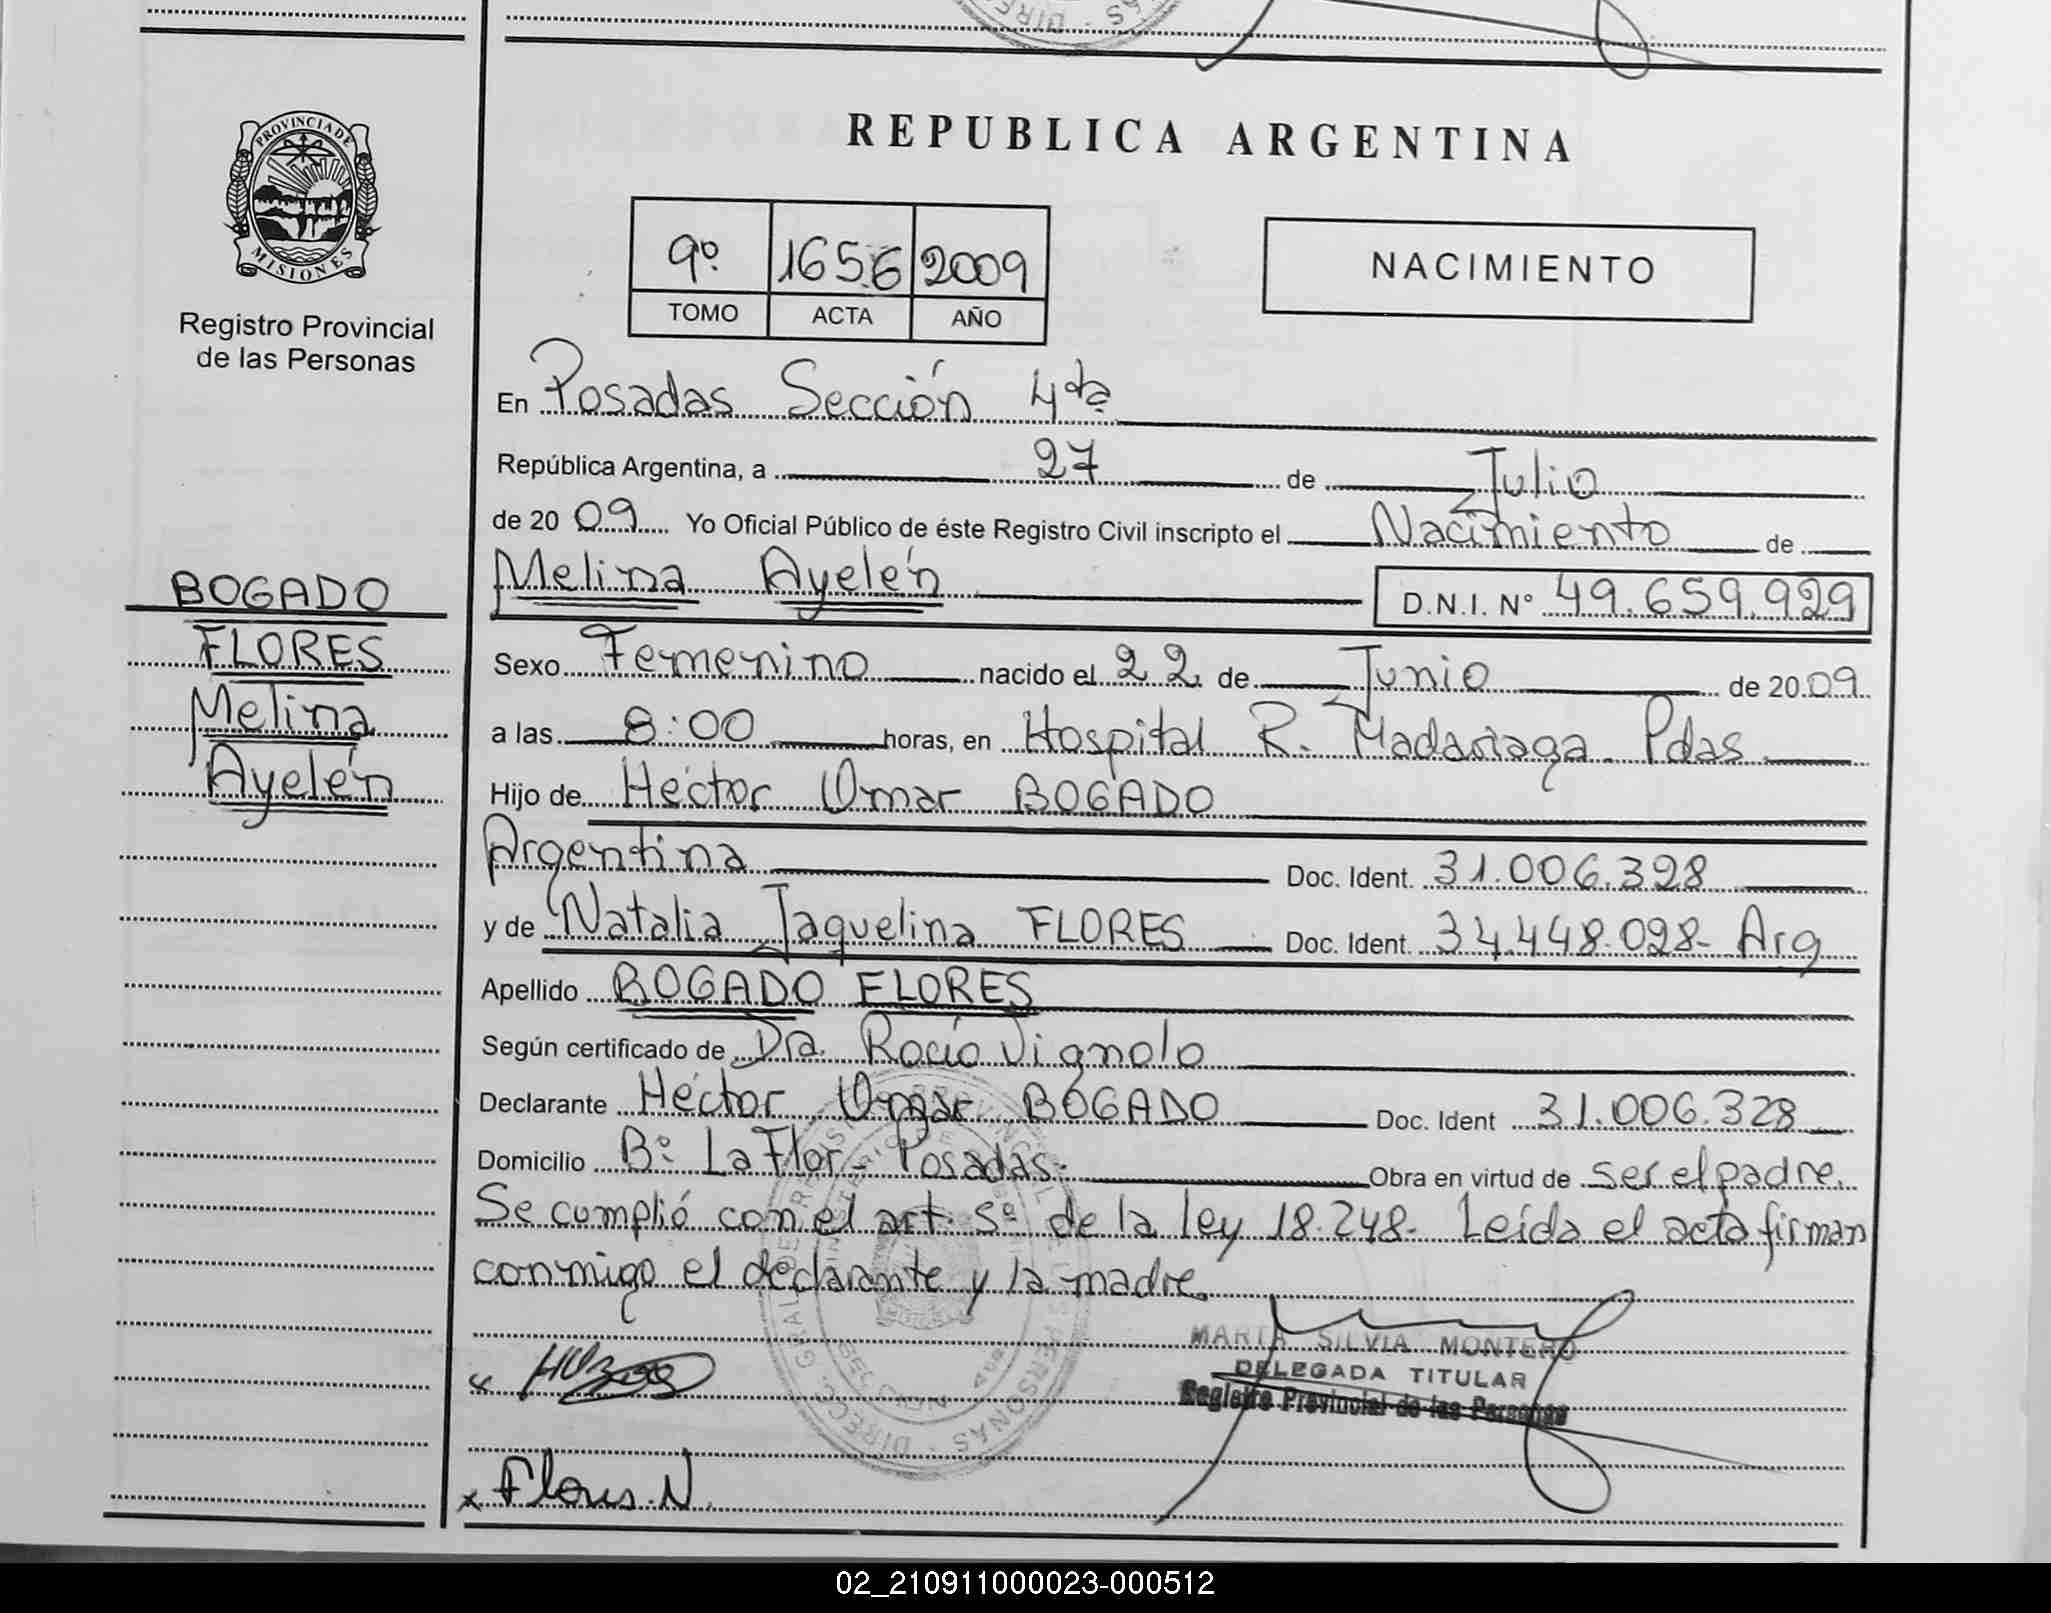 REPUBLICA ARGENTINA
PROVINCIA DE
MISIONES
Registro Provincial
de las Personas
9º 1656 2009
TOMO ACTA AÑO
NACIMIENTO
En Posadas Sección 4ta
República Argentina, a 27 de Julio
de 20 09 Yo Oficial Público de éste Registro Civil inscripto el Nacimiento de
Melina Ayelén D.N.I. Nº 49.659.929
BOGADO
FLORES
Melina
Ayelén
Sexo Femenino nacido el 22 de Junio de 20 09
a las 8:00 horas, en Hospital R. Madariaga. Pdas
Hijo de Héctor Omar BOGADO
Argentina Doc. Ident. 31.006.328
y de Natalia Jaquelina FLORES Doc. Ident. 34.448.028- Arg
Apellido BOGADO FLORES
Según certificado de Dra. Rocío Vignolo
Declarante Héctor Omar BOGADO Doc. Ident 31.006.328
Domicilio Bº La Flor - Posadas. Obra en virtud de ser el padre.
Se cumplió con el art. 5º de la ley 18.248. Leída el acta firman
conmigo el declarante y la madre.
MARTA SILVIA MONTERO
DELEGADA TITULAR
Registro Provincial de las Personas
x Flores N.
02_210911000023-000512